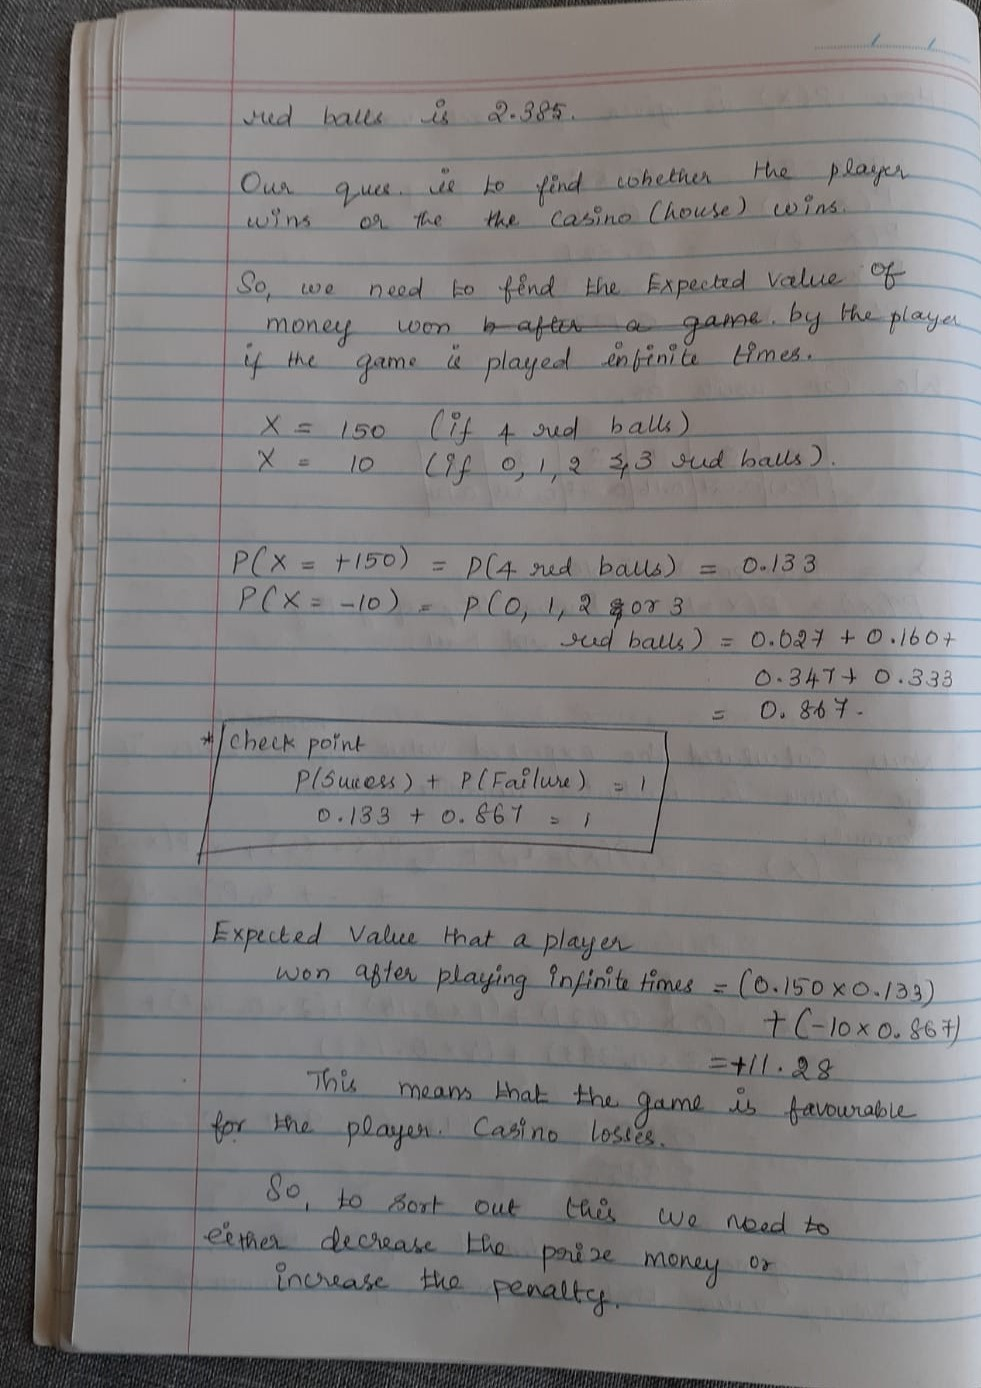 red balls is 2.385.
Our ques. is to find whether the player
wins or the the casino (house) wins.
So, we need to find the Expected Value of
money won b after a game. by the player
if the game is played infinite times.
X = 150 (if 4 red balls)
X = 10 (if 0, 1, 2 3,3 red balls).
P(X = +150) = P(4 red balls) = 0.133
P(X = -10) = P(0, 1, 2 or 3
red balls) = 0.027 + 0.160+
0.347+ 0.333
= 0.867.
* Check point
P(Sucess) + P(Failure) = 1
0.133 + 0.867 = 1
Expected Value that a player
won after playing infinite times = (0.150 x 0.133)
+ (-10 x 0.867)
= +11.28
This means that the game is favourable
for the player. Casino losses.
So, to sort out this we need to
either decrease the prize money or
increase the penalty.